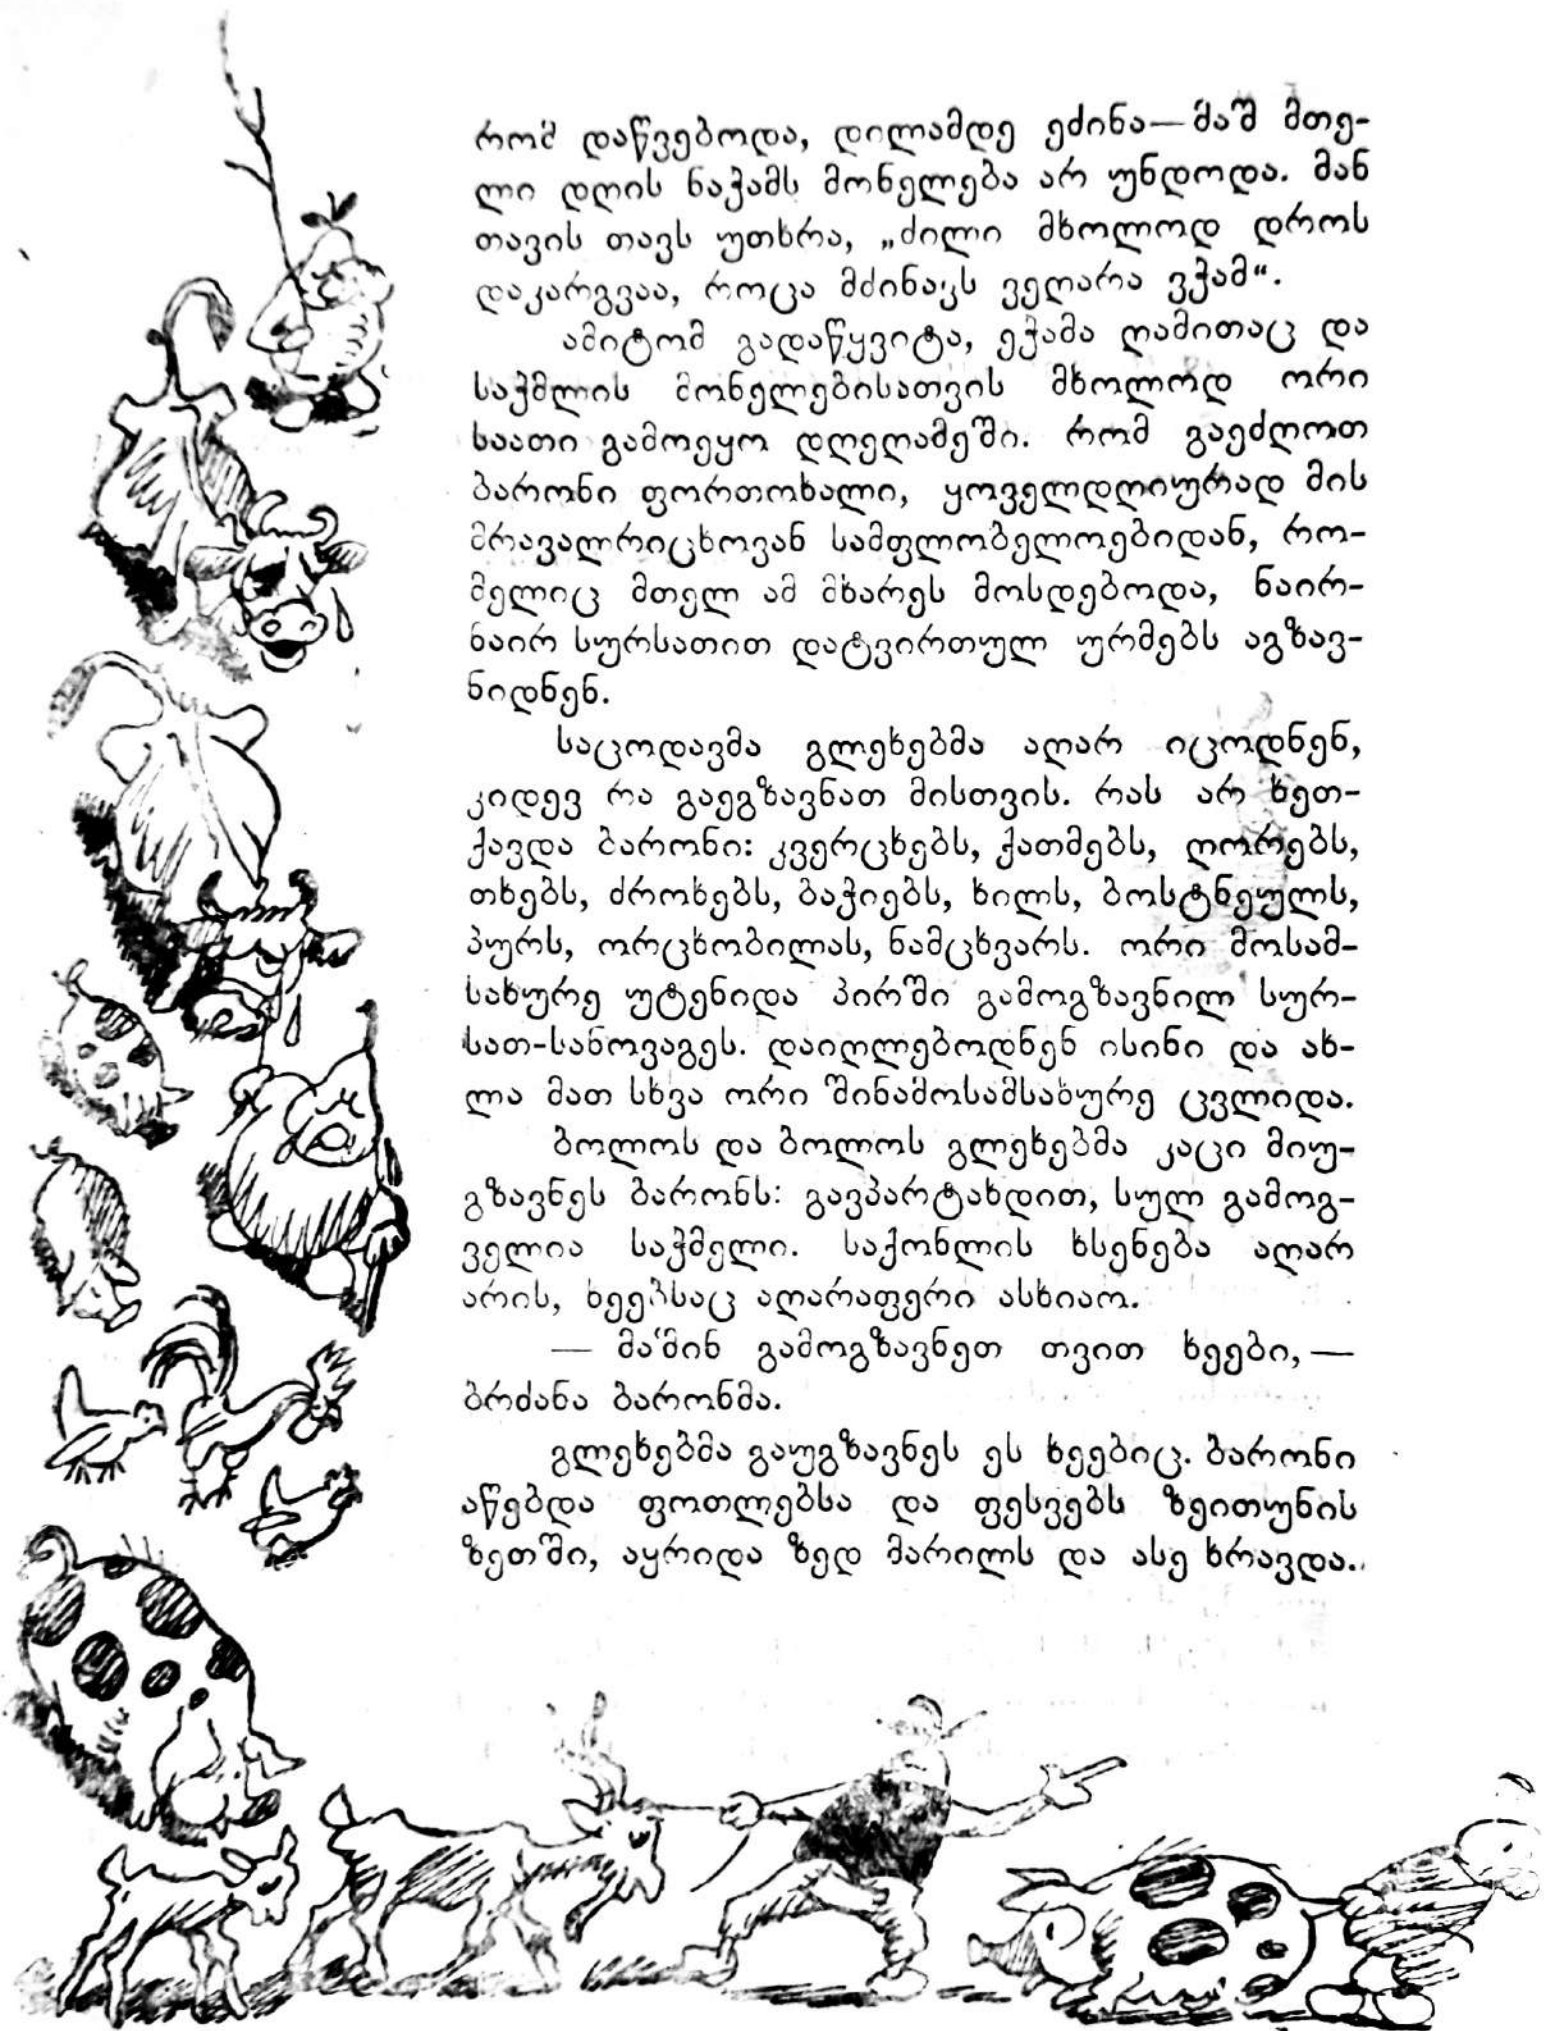 რომ დაწვებოდა, დილამდე ეძინა—მაშ მთე-
ლი დღის ნაჭამს მონელება არ უნდოდა. მან
თავის თავს უთხრა, „ძილი მხოლოდ დროს
დაკარგვაა, როცა მძინავს ვეღარა ვჭამ“.
ამიტომ გადაწყვიტა, ეჭამა ღამითაც და
საჭმლის მონელებისათვის მხოლოდ ორი
საათი გამოეყო დღეღამეში. რომ გაეძღოთ
ბარონი ფორთოხალი, ყოველდღიურად მის
მრავალრიცხოვან სამფლობელოებიდან, რო-
მელიც მთელ ამ მხარეს მოსდებოდა, ნაირ-
ნაირ სურსათით დატვირთულ ურმებს აგზავ-
ნიდნენ.
საცოდავმა გლეხებმა აღარ იცოდნენ,
კიდევ რა გაეგზავნათ მისთვის. რას არ ხეთ-
ქავდა ბარონი: კვერცხებს, ქათმებს, ღორებს,
თხებს, ძროხებს, ბაჭიებს, ხილს, ბოსტნეულს,
პურს, ორცხობილას, ნამცხვარს. ორი მოსამ-
სახურე უტენიდა პირში გამოგზავნილ სურ-
სათ-სანოვაგეს. დაიღლებოდნენ ისინი და ახ-
ლა მათ სხვა ორი შინამოსამსახურე ცვლიდა.
ბოლოს და ბოლოს გლეხებმა კაცი მიუ-
გზავნეს ბარონს: გავპარტახდით, სულ გამოგ-
ველია საჭმელი. საქონლის ხსენება აღარ
არის, ხეებსაც აღარაფერი ასხიაო.
— მაშინ გამოგზავნეთ თვით ხეები,—
ბრძანა ბარონმა.
გლეხებმა გაუგზავნეს ეს ხეებიც. ბარონი
აწებდა ფოთლებსა და ფესვებს ზეითუნის
ზეთში, აყრიდა ზედ მარილს და ასე ხრავდა.